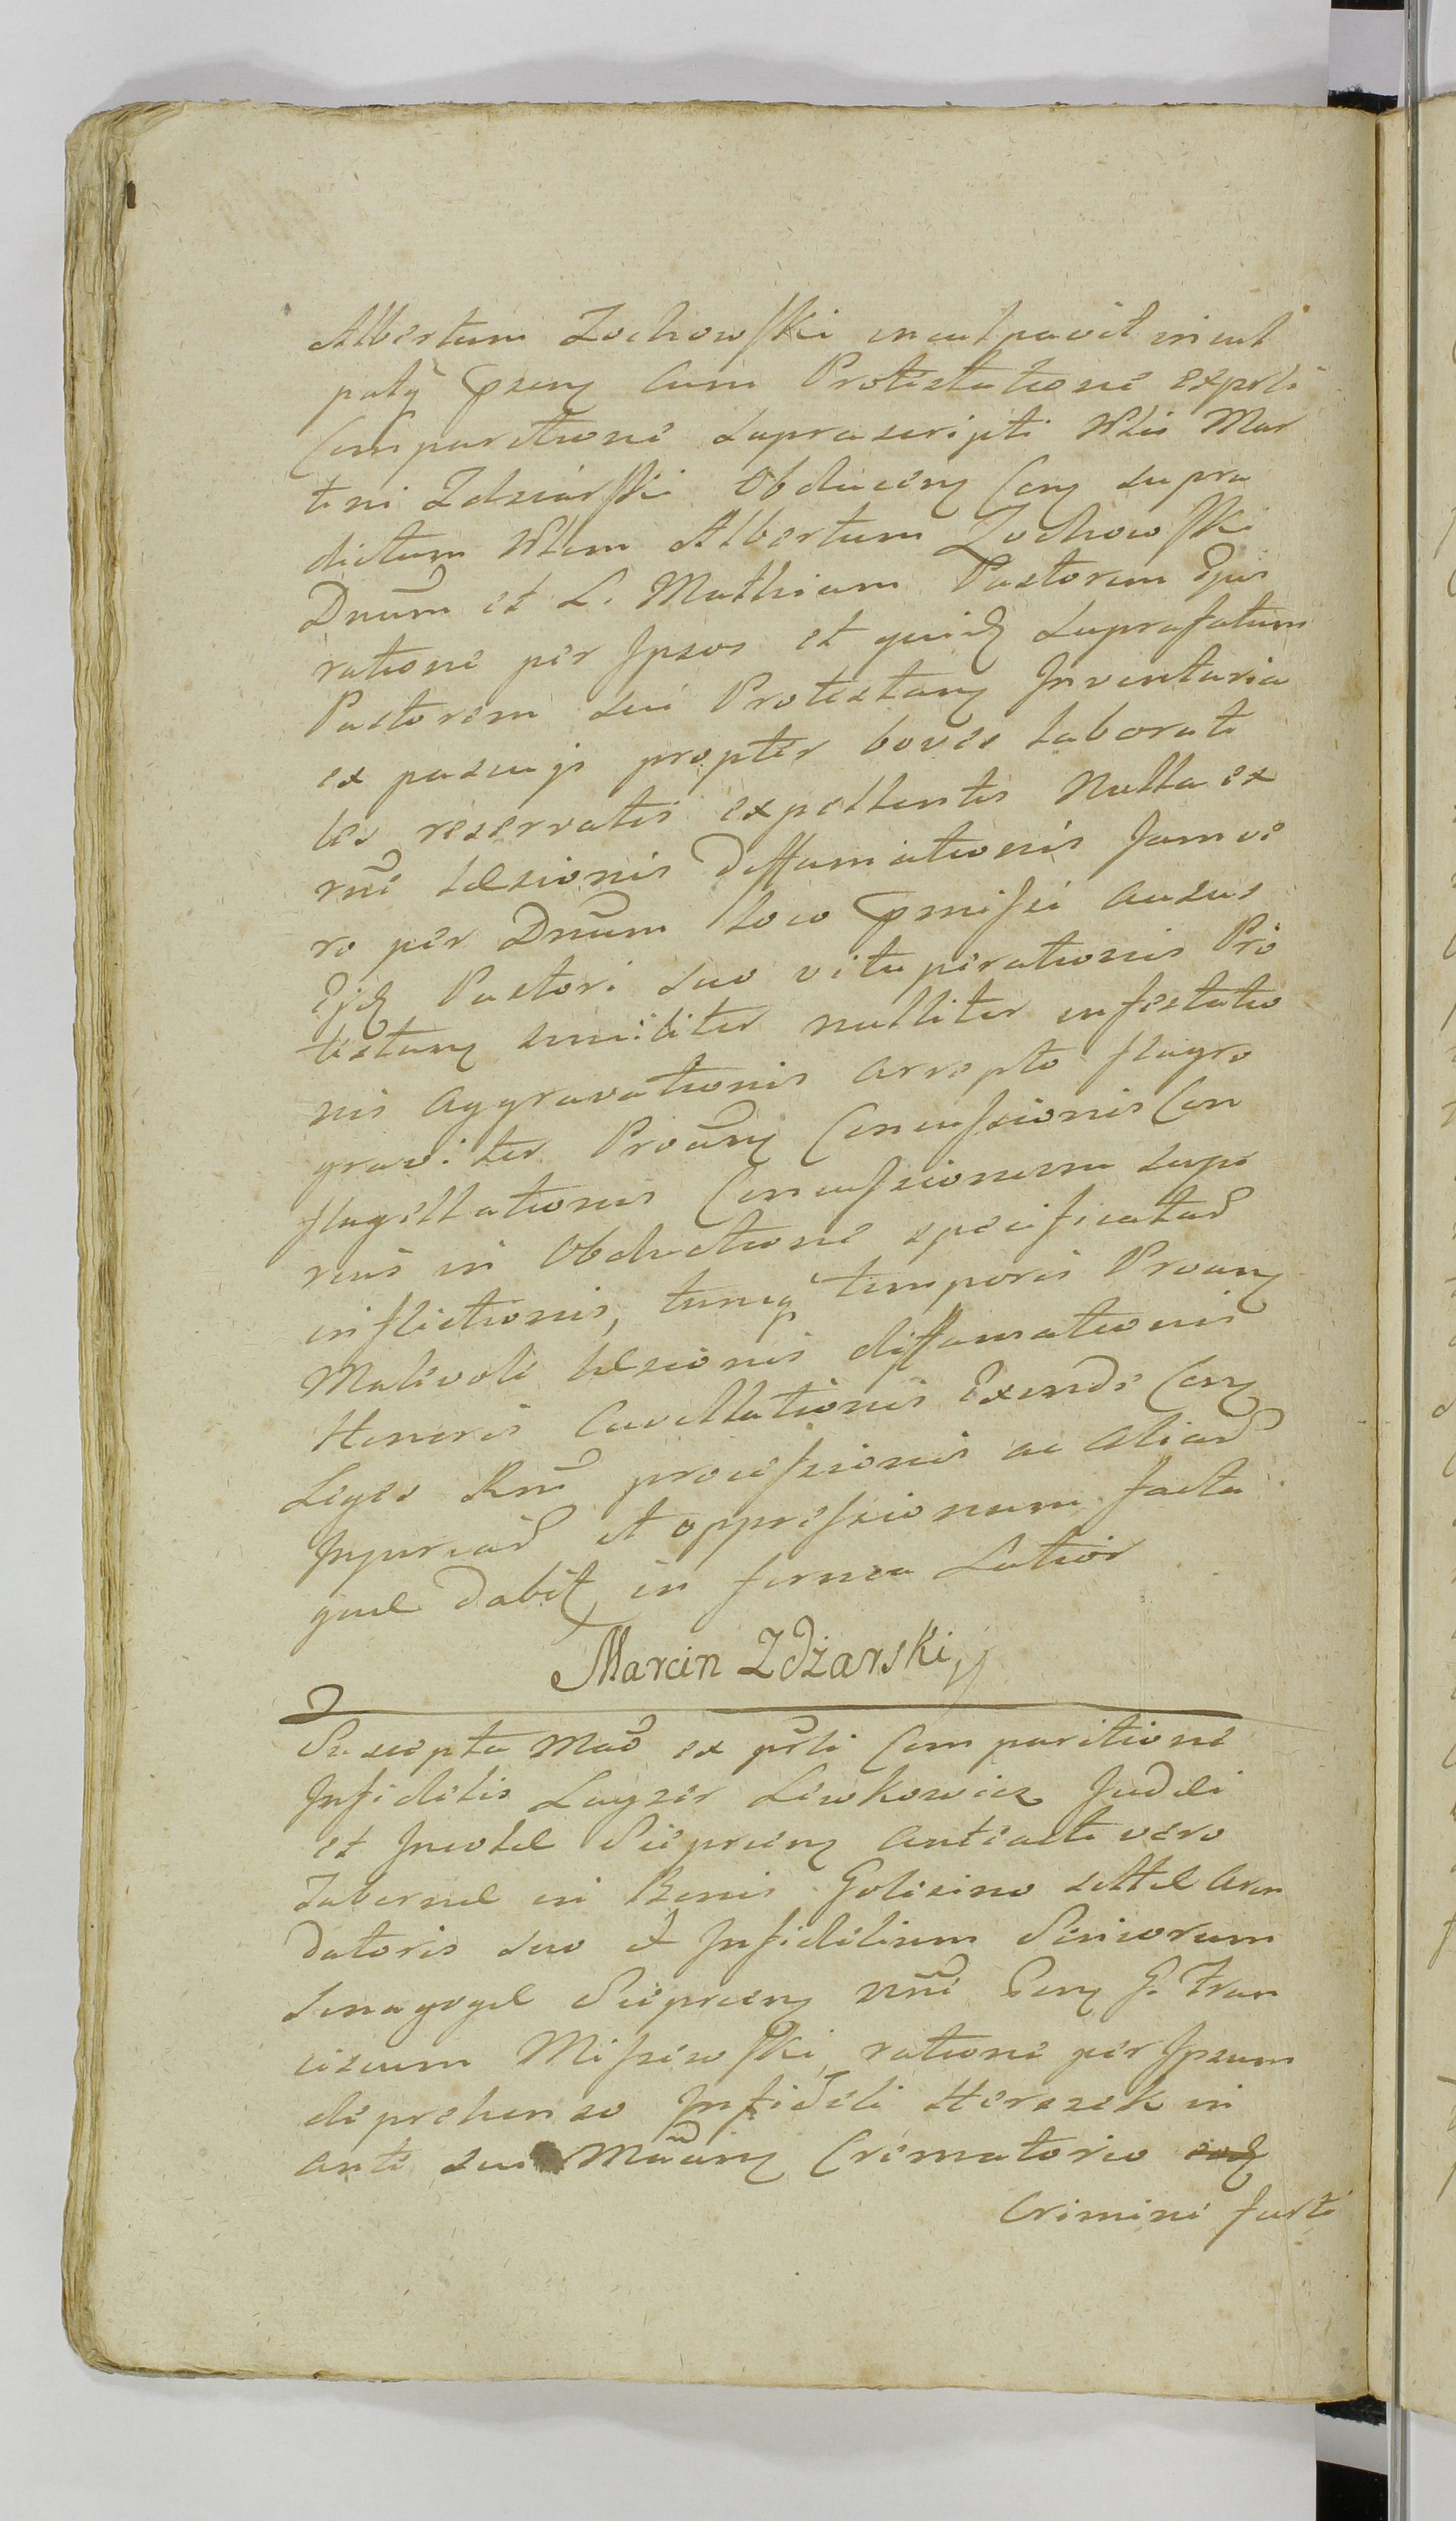 Albertum Zochowski inculpavit incul
patq Psenz cum Protestatione exprti
Comparitione suprascripti Nlis Mar
tini Zdziarski Obducenz Conz supra
dictum Nlem Albertum Zochowski
Dnum et L. Mathiam Pastorem Ejus
ratione per Ipsos et quidz suprafatum
Pastorem sui Protestanz Inventaria
ex pascuis propter boves laborati
les reservatis expellentis Nulla ex
rne læsionis Diffamationis Jam ve
ro per Dnum loco Pmissi ausus
Ejdz Pastori suo vituperationis Pro
testanz similiter nulliter infestatio
nis aggravationis arrepto flagro
graviter Proanz Concussionis Con
flagellationis Concussionum supe
rius in Obductione specificatar
inflictionis, tuncq temporis Proanz
Malevole læsionis diffamationis
Honoris Cavillationis Exinde Conz
Leges Rni processionis ac Aliar
Injuriar et oppressionum facta
quæ Dabit in forma Latior
Marcin Zdżarski
Suscepta Mao ex prti Comparitione
Infidelis Layzer Lewkowicz Judæi
et Incolæ Sieprcenz anteacte vero
Tabernæ in Bonis Golisino sittæ Aren
datoris suo et Infidelium Seniorum
Sinagogæ Sieprcenz nne Penz G. Fran
ciscum Misiewski ratione per Ipsum
deprehenso Infideli Herszek in
ante sui Manz Crematorio eodz
Crimine furti